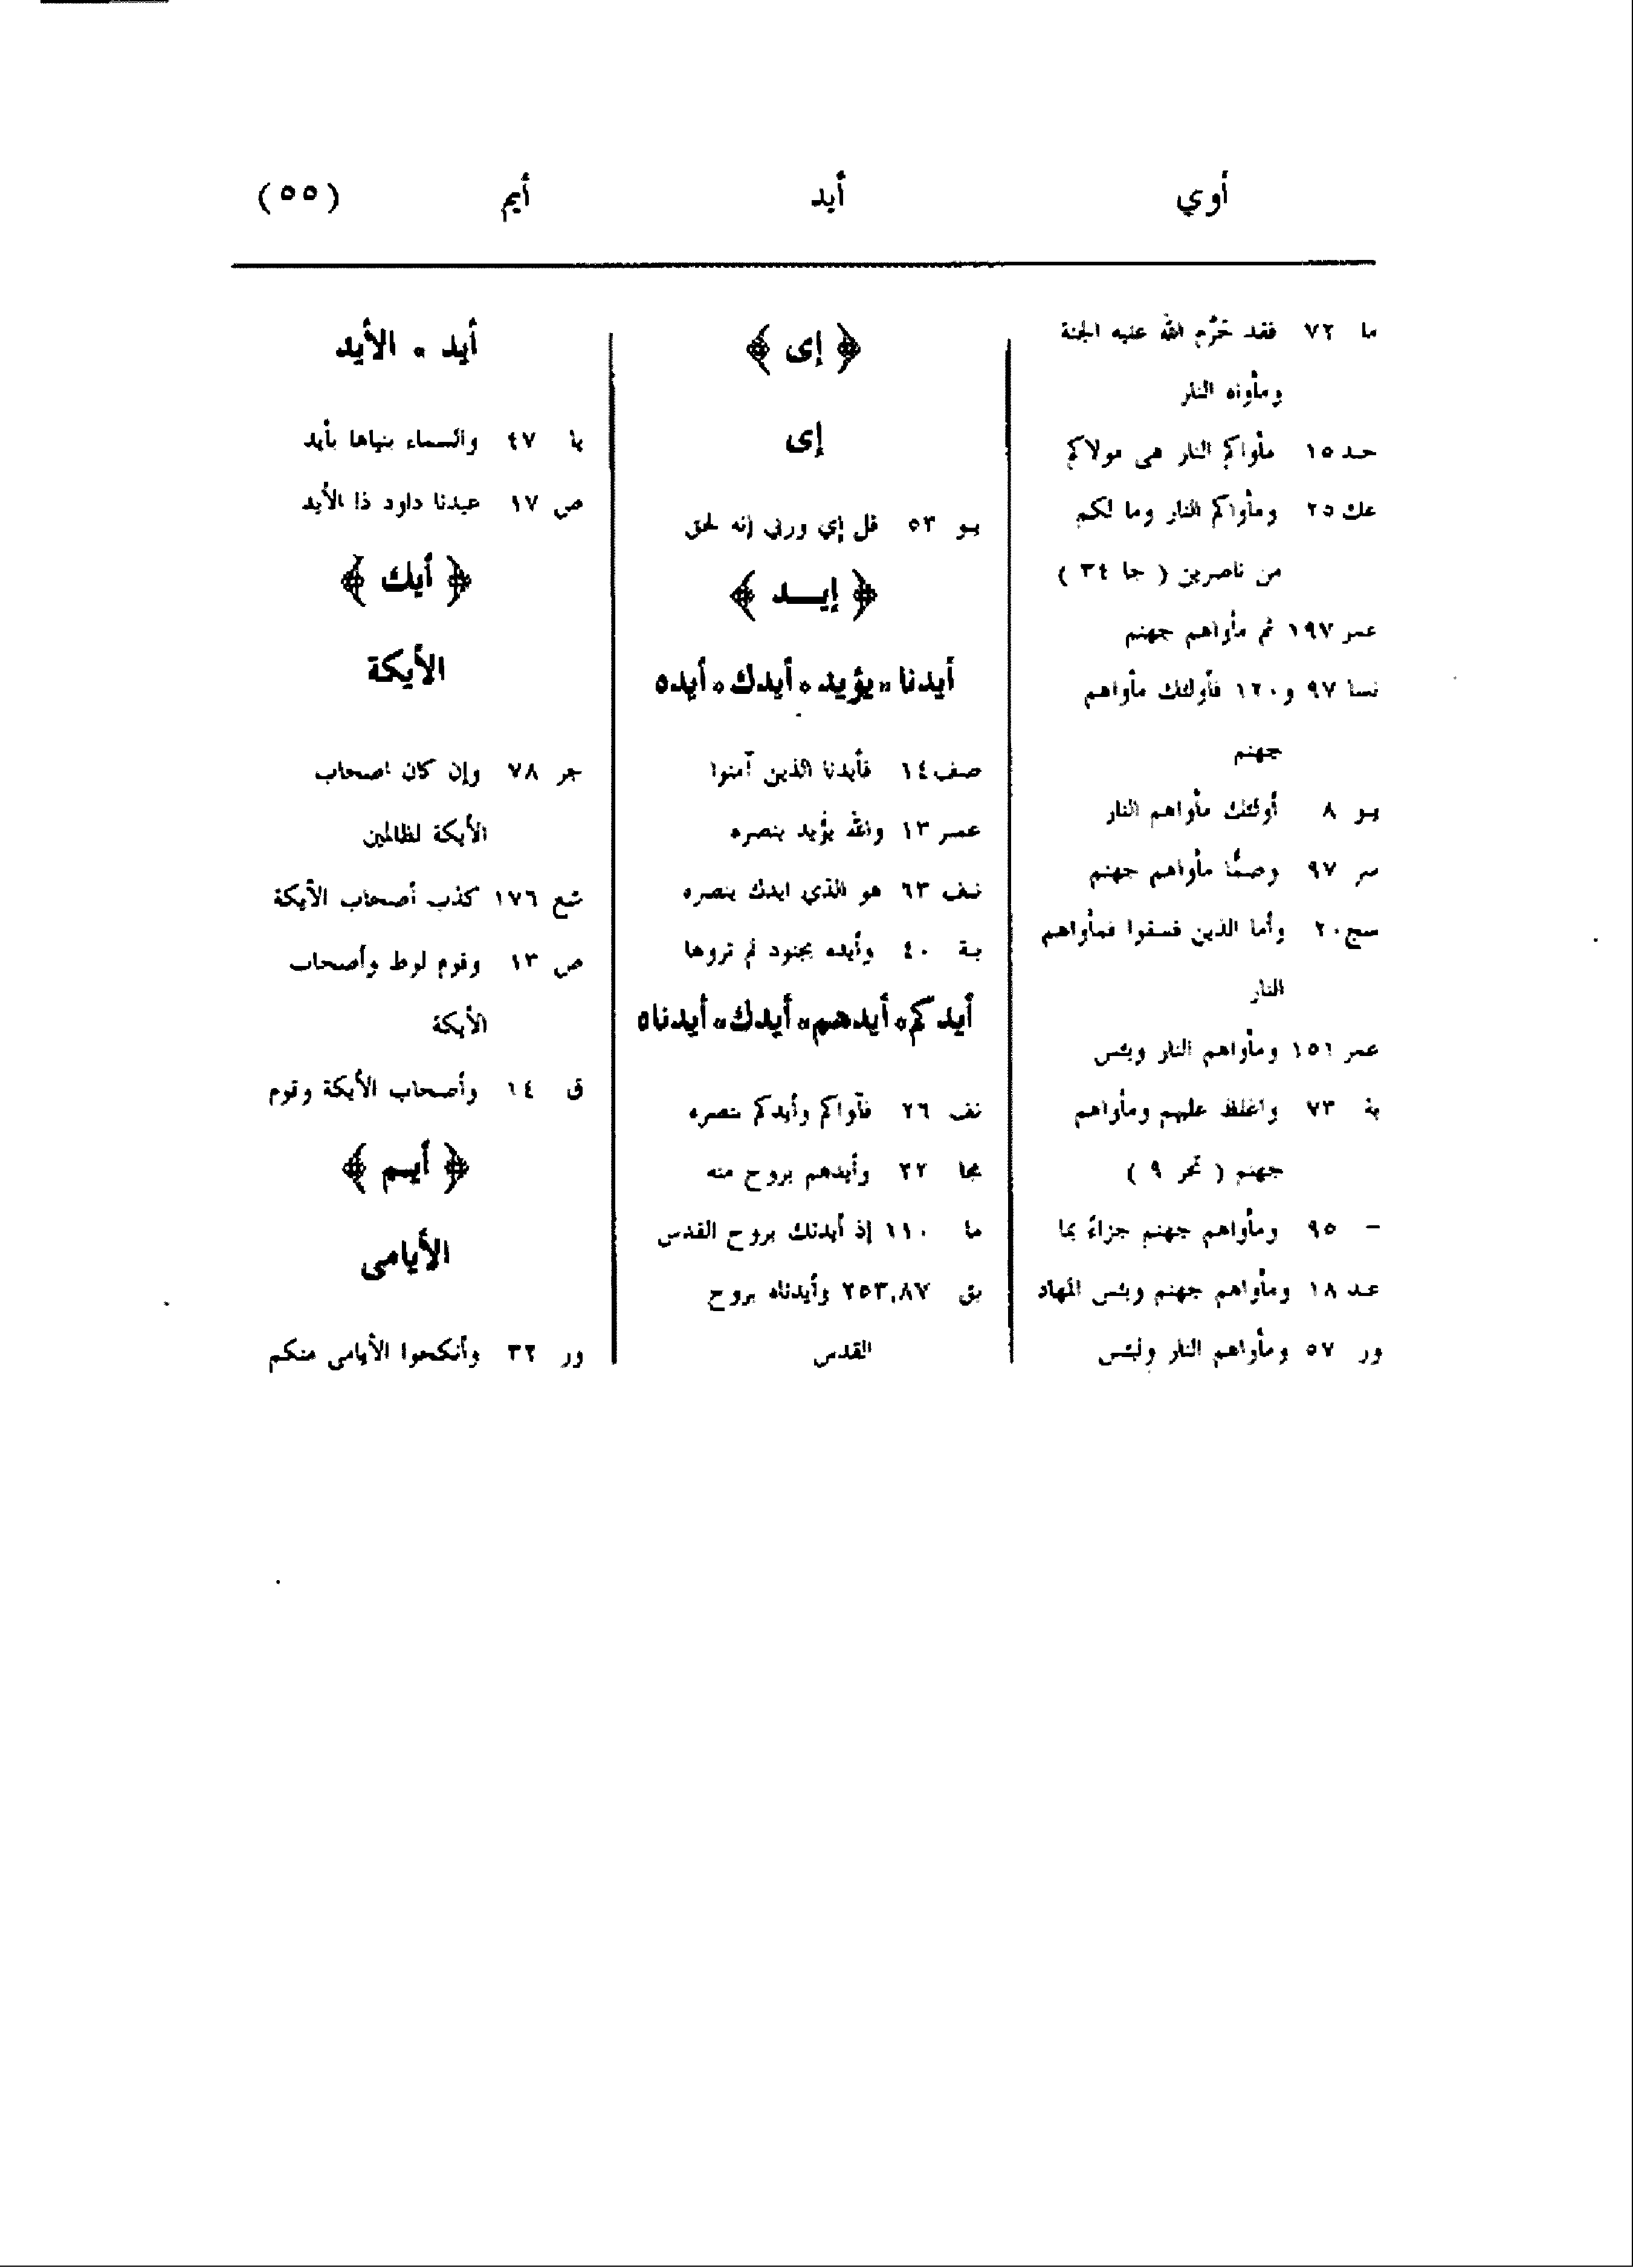 أوي أيد أيم (٥٥)
ما ٧٢ فقد حَرَّم الله عليه الجنة
ومأواه النار
حد ١٥ مأواكم النار هي مولاكم
عك ٢٥ ومأواكم النار وما لكم
من ناصرين ( جا ٣٤ )
عمر ١٩٧ ثم مأواهم جهنم
نسا ٩٧ و ١٢٠ فأولئك مأواهم
جهنم
يو ٨ أولئك مأواهم النار
سر ٩٧ وصمًّا مأواهم جهنم
سج ٢٠ وأما الذين فسقوا فمأواهم
النار
عمر ١٥١ ومأواهم النار وبئس
بة ٧٣ واغلظ عليهم ومأواهم
جهنم ( تحر ٩ )
– ٩٥ ومأواهم جهنم جزاءً بما
عد ١٨ ومأواهم جهنم وبئس المهاد
ور ٥٧ ومأواهم النار ولبئس
﴿ إى ﴾
إى
يو ٥٣ قل إي وربي إنه لحق
﴿ إيــد ﴾
أيدنا ٥ يؤيد ٥ أيدك ٥ أيده
صف ١٤ فأيدنا الذين آمنوا
عمر ١٣ والله يؤيد بنصره
نف ٦٣ هو الذي ايدك بنصره
بة ٤٠ وأيده بجنود لم تروها
أيدكم ٥ أيدهم ٥ أيدك ٥ أيدناه
نف ٢٦ فآواكم وأيدكم بنصره
مجا ٢٢ وأيدهم بروح منه
ما ١١٠ إذ أيدتك بروح القدس
بق ٢٥٣,٨٧ وأيدناه بروح
القدس
أيد ٥ الأيد
يا ٤٧ والسماء بنيناها بأيد
ص ١٧ عبدنا داود ذا الأيد
﴿ أيك ﴾
الأيكة
جر ٧٨ وإن كان اصحاب
الأيكة لظالمين
شع ١٧٦ كذب أصحاب الأيكة
ص ١٣ وقوم لوط وأصحاب
الأيكة
ق ١٤ وأصحاب الأيكة وقوم
﴿ أيـم ﴾
الأيامى
ور ٣٢ وأنكحوا الأيامى منكم